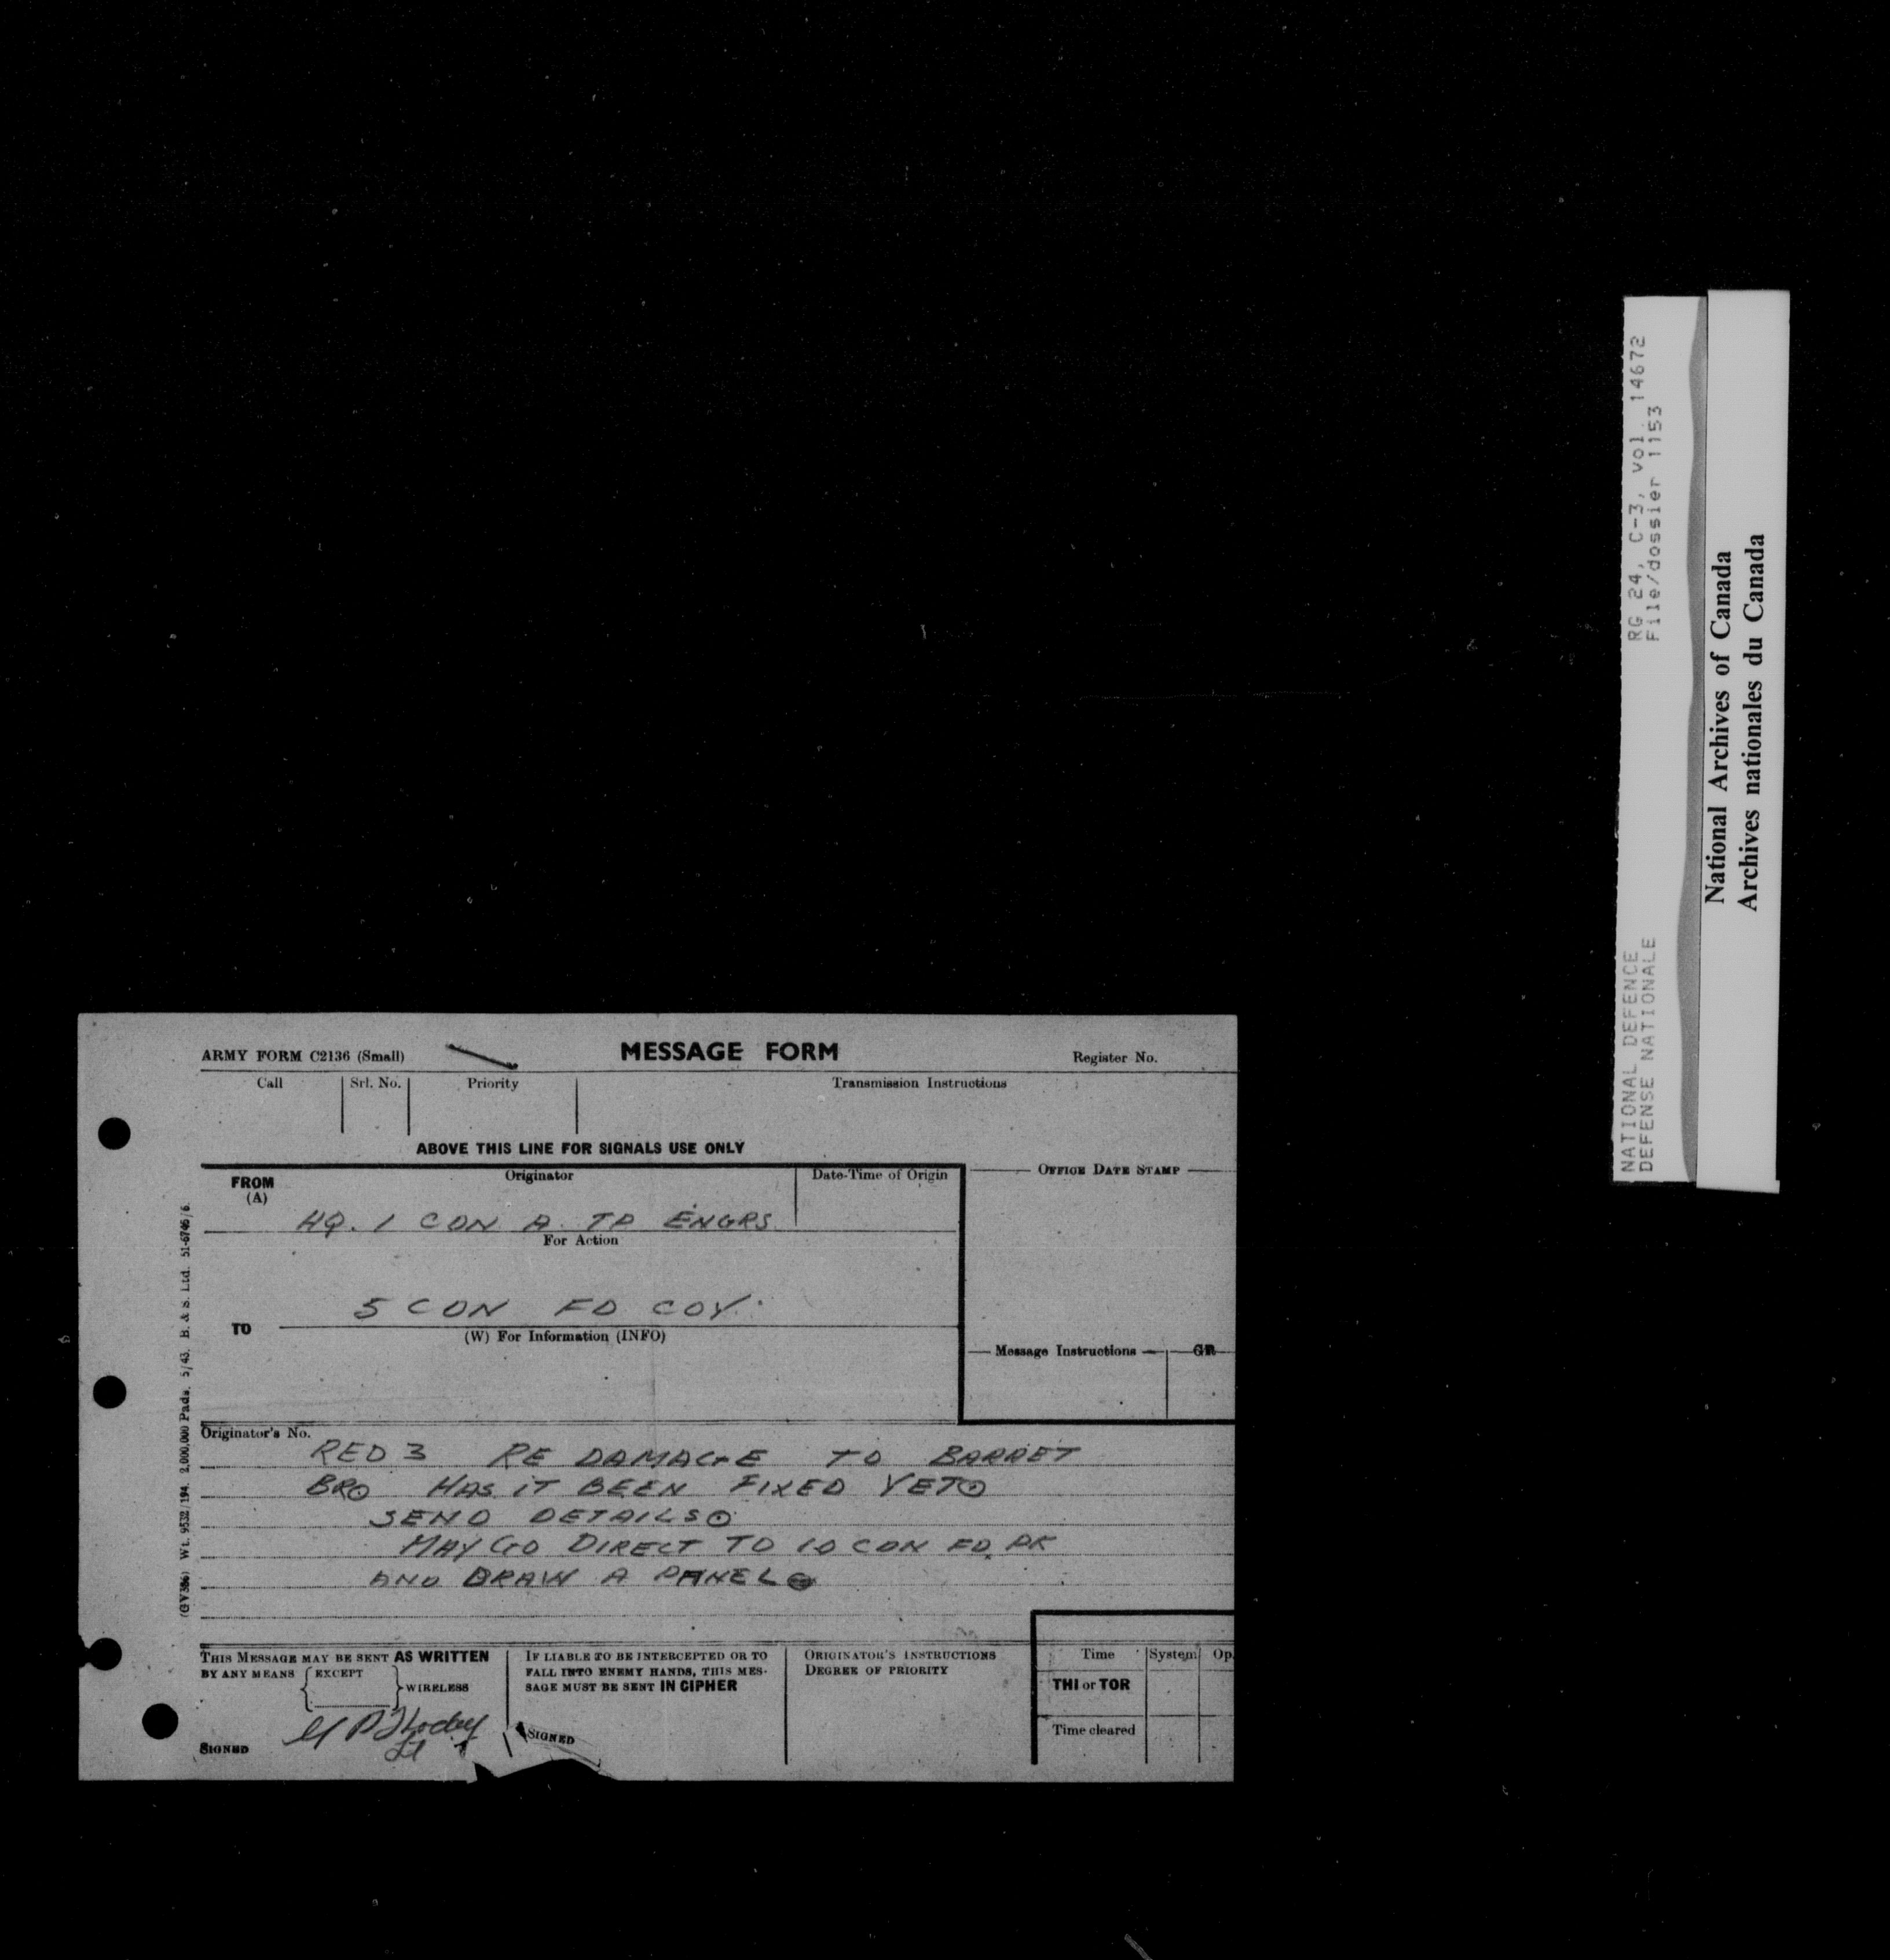 ARMY FORM C2136 (Small)
MESSAGE FORM
Register No.
Call
Srl. No.
Priority
Transmission Instructions
ABOVE THIS LINE FOR SIGNALS USE ONLY
FROM
(A)
Originator
Date-Time of Origin
OFFICE DATE STAMP
HQ. 1 CDN A. TP ENGRS
For Action
5 CDN FD COY.
TO
(W) For Information (INFO)
Message Instructions
GR
Originator's No.
RED 3 RE DAMAGE TO BARRET
BR⊙ HAS IT BEEN FIXED YET⊙
SEND DETAILS⊙
MAY GO DIRECT TO 10 CDN FD. PK
AND DRAW A PANEL⊙
THIS MESSAGE MAY BE SENT AS WRITTEN
BY ANY MEANS { EXCEPT } WIRELESS
SIGNED
Lt
IF LIABLE TO BE INTERCEPTED OR TO
FALL INTO ENEMY HANDS, THIS MES-
SAGE MUST BE SENT IN CIPHER
SIGNED
ORIGINATOR'S INSTRUCTIONS
DEGREE OF PRIORITY
Time
System
Op.
THI or TOR
Time cleared
(GV386) Wt. 9532/194 2,000,000 Pads. 5/43. B. & S. Ltd. 51-6746/6.
NATIONAL DEFENCE RG 24, C-3, vol. 14672
DEFENSE NATIONALE File/dossier 1153
National Archives of Canada
Archives nationales du Canada